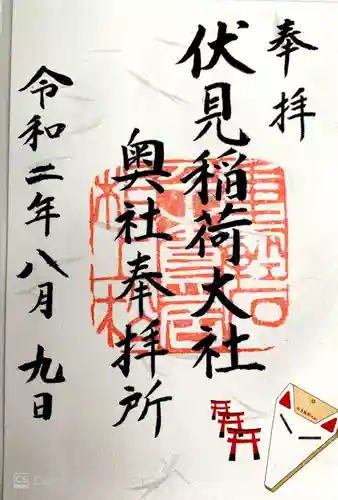 奉拝
伏見稲荷大社
奥社奉拝所
令和二年八月九日
CS